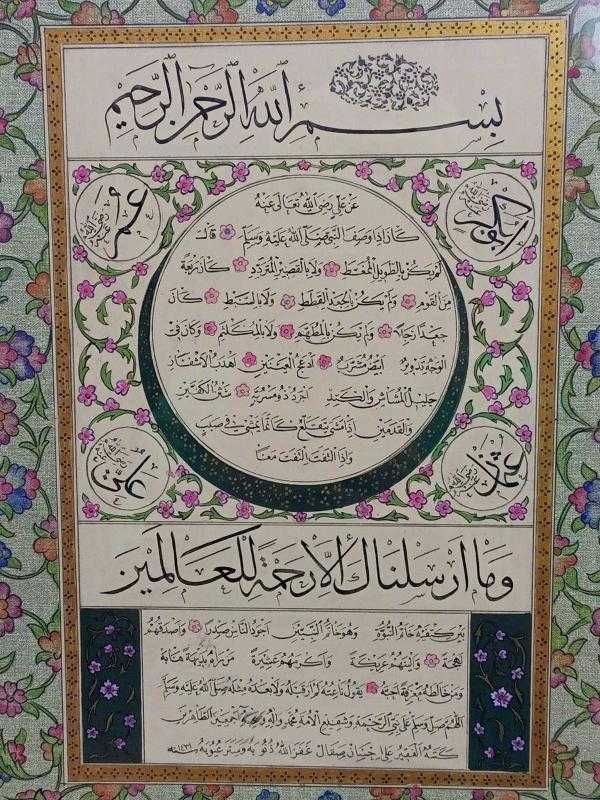 بِسْمِ اللَّهِ الرَّحْمٰنِ الرَّحِيمِ
ابوبكر رضي الله عنه
عمر رضي الله عنه
عن علي رضي الله تعالى عنه
كان اذا وصف النبي صلى الله عليه وسلم قال
لم يكن بالطويل الممغط ولا بالقصير المتردد كان ربعة
من القوم ولم يكن بالجعد القطط ولا بالسبط كان
جعدا رجلا ولم يكن بالمطهم ولا بالمكلثم وكان في
الوجه تدوير ابيض مشرب ادعج العينين اهدب الاشفار
جليل المشاش والكتد اجرد ذو مسربة شثن الكفين
والقدمين اذا مشى يتقلع كانما يمشي في صبب
واذا التفت التفت معا
عثمان رضي الله عنه
علي رضي الله عنه
وَمَا اَرْسَلْنَاكَ اِلَّا رَحْمَةً لِلْعَالَمِينَ
بين كتفيه خاتم النبوة وهو خاتم النبيين اجود الناس صدرا واصدقهم
لهجة والينهم عريكة واكرمهم عشيرة من رآه بديهة هابه
ومن خالطه معرفة احبه يقول ناعته لم ار قبله ولا بعده مثله صلى الله عليه وسلم
اللهم صل وسلم على نبي الرحمة وشفيع الامة محمد وآله وصحبه اجمعين الطاهرين
كتبه الفقير علي غفر الله ذنوبه وستر عيوبه